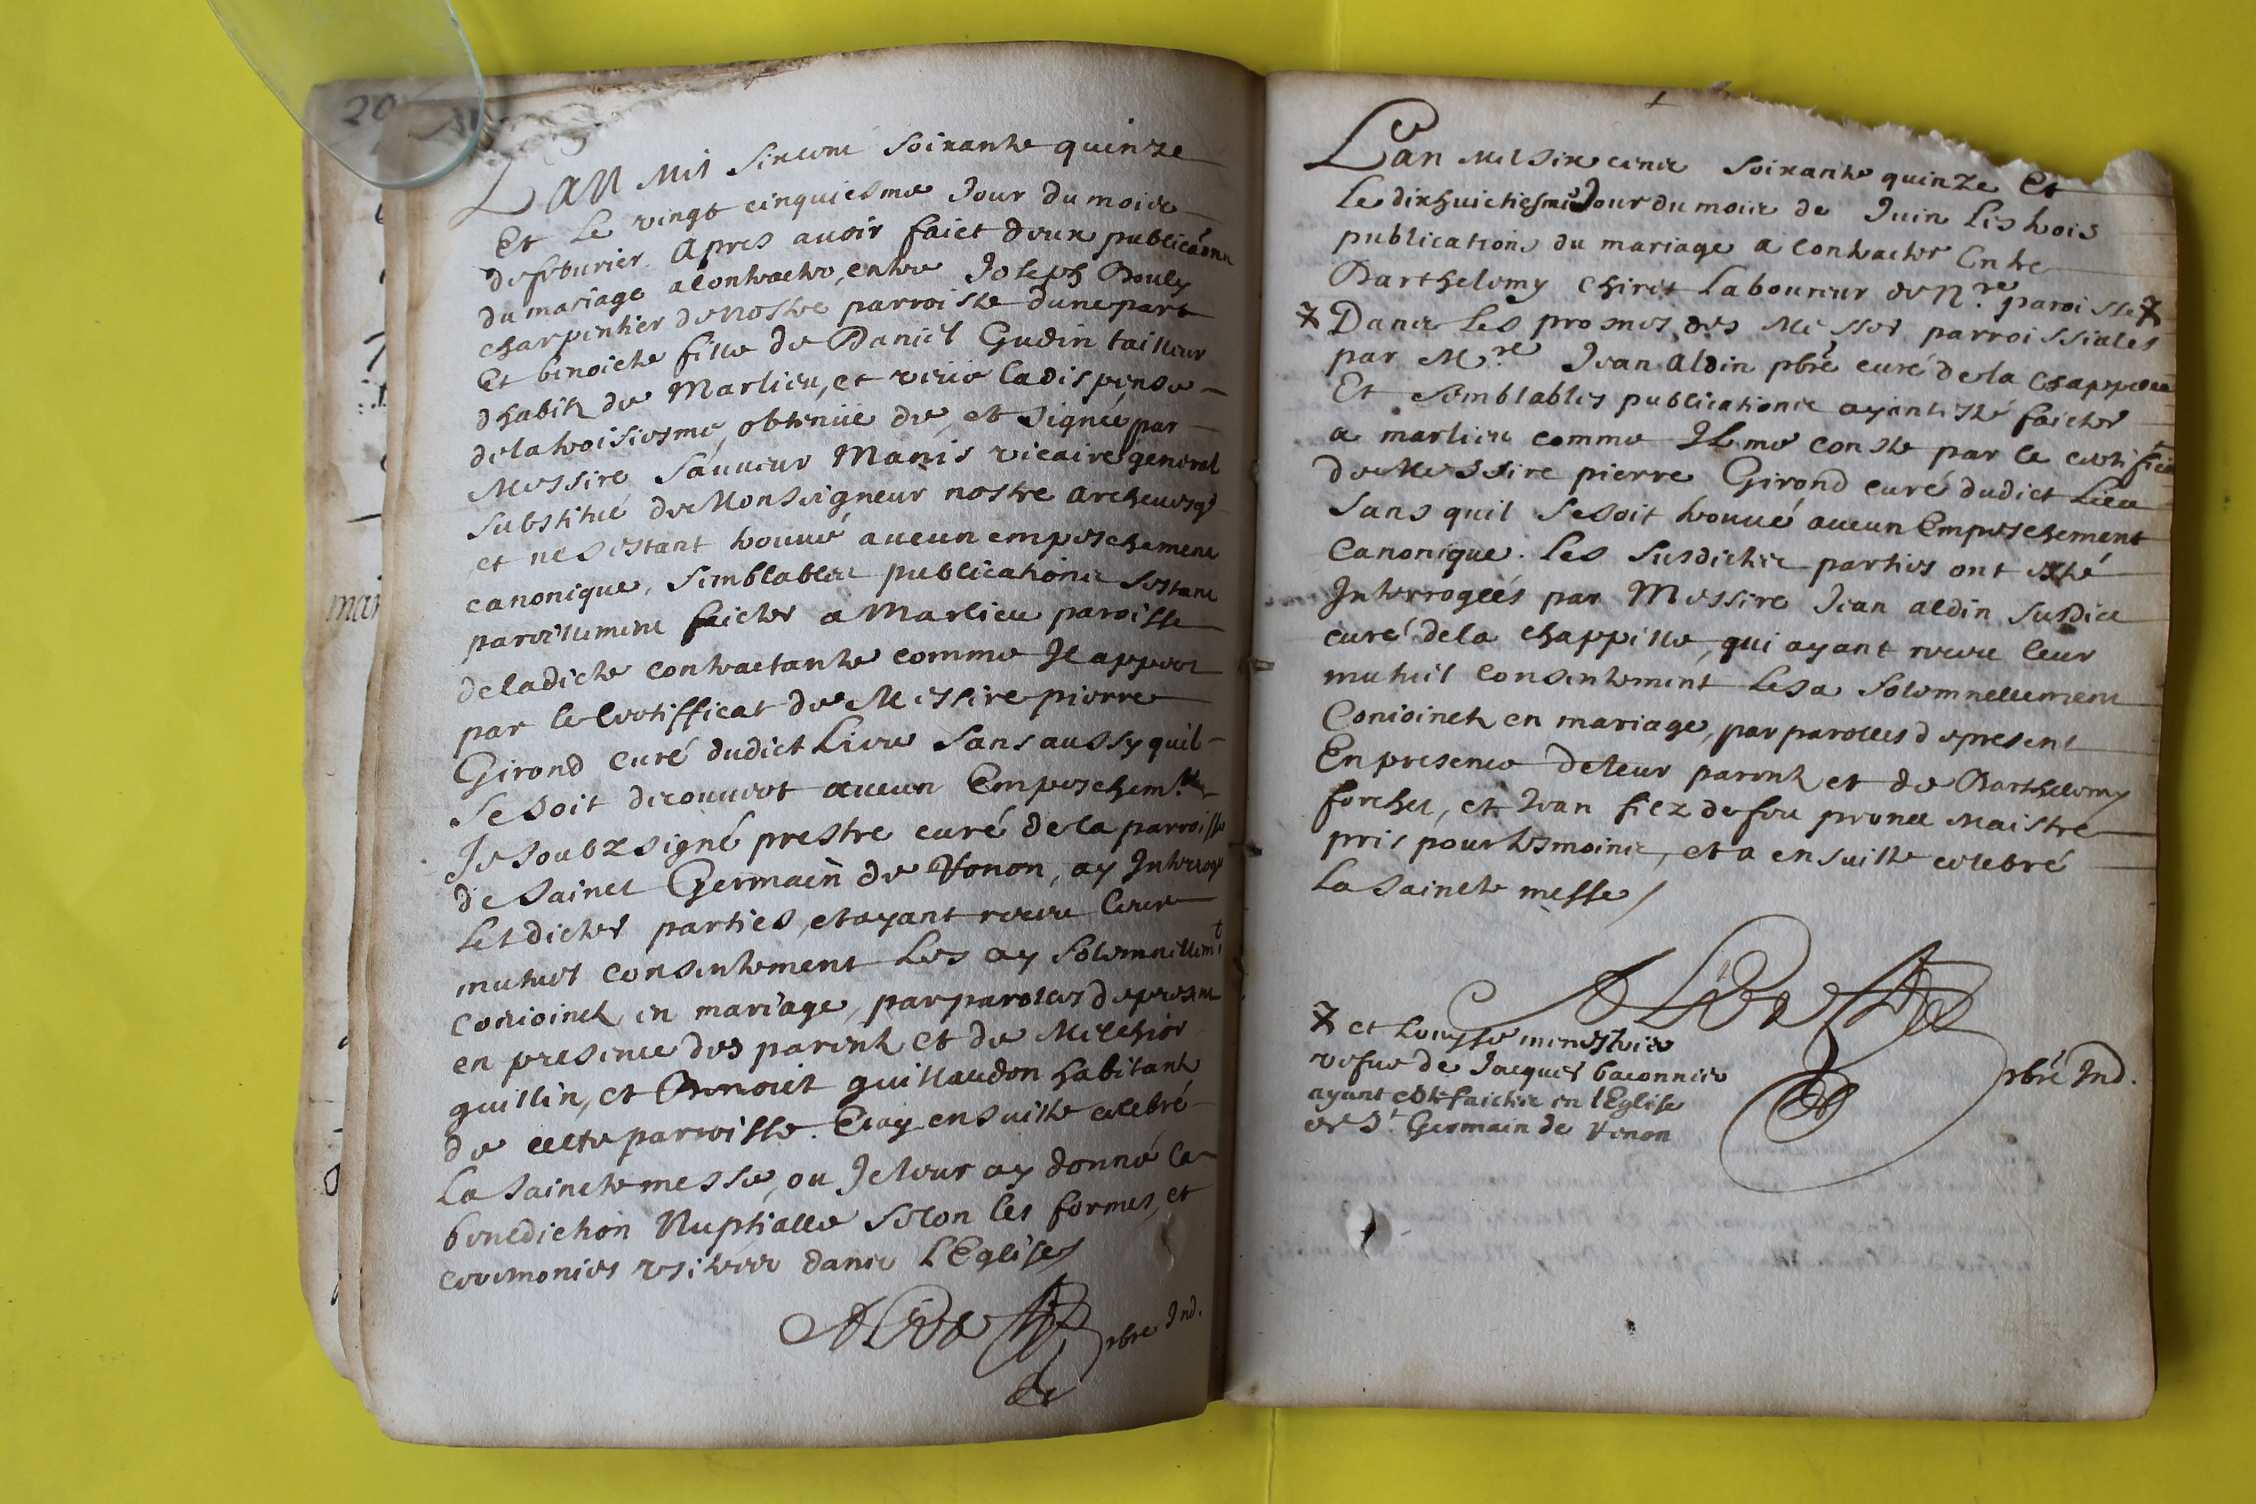 20
LAN Mil sixcens soixante quinze
Et le vingt cinquiesme Jour du moice
de feburier Apres avoir faict deux publicaõns
du mariage a contracter, entre Joseph Bouly
charpentier de nostre parroisse dune part
Et benoiste fille de Daniel Gudin tailleur
dhabitz de Marlieu, et veüe la dispense
de la troisiesme, obtenüe de, et signée par
Messire Sauveur Manis vicaire general
substitué de Monseigneur nostre archevesq
et ne sestant trouvé aucun empeschement
canonique, semblables publications sestant
pareillement faictes a Marlieu paroisse
de ladicte contractante comme Il appert
par le Certifficat de Messire pierre
Girond curé dudict Lieu sans aussy quil
se soit decouvert aucun Empeschem.t
Je soubzsigné prestre curé de la parroisse
de Sainct Germain de Renon, ay Interrogé
lesdictes parties, et ayant receu leur
mutuel consentement Les ay solemnellem.t
conioinct en mariage, par paroles de present
en presence des parents et de Melchior
guillin, et Benoict guillaudon habitants
de cette parroisse. Et ay ensuitte celebré
La saincte messe, ou Je leur ay donné la
benediction Nuptialle selon les formes, et
ceremonies usitées dans LEglise
pbre Ind.
Lan Mil six cens soixante quinze Et
Le dixhuictiesme Jour du mois de Juin les trois
publications du mariage a contracter Entre
Barthelemy Chiret Laboureur de N.re paroisse X
X Dans les prosnes des Messes parroissiales
par M.re Jean Aldin pbre curé de la Chappelle
Et semblables publications ayant esté faictes
a marlieu comme Il me conste par le certificat
de Messire pierre Girond curé dudict Lieu
sans quil se soit trouvé aucun Empeschement
Canonique. Les susdictes parties ont esté
Interrogées par Messire Jean aldin susdict
curé de la chappelle, qui ayant receu leur
mutuel consentement Les a solemnellement
Conioinct en mariage, par parolles de present
En presence de leur parents et de Barthelemy
forchet, et Jean filz de feu prence Maistre
pris pour tesmoins, et a ensuitte celebré
La saincte messe /
X et Louyse menestrier
vefve de Jacques baconnier
ayant esté faictes en lEglise
de St Germain de Renon
pbre Ind.